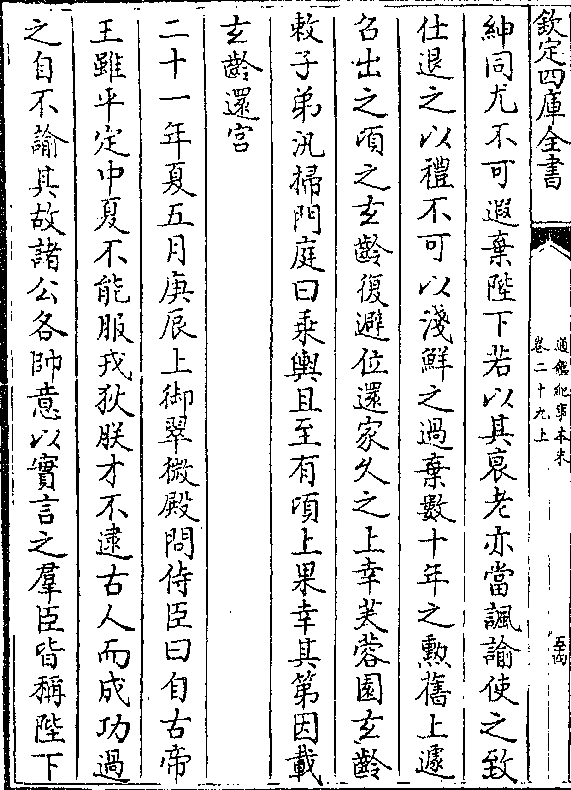 欽定四庫全書
通鑑紀事本末
卷二十九上
紳同尤不可遐棄陛下若以其衰老亦當諷諭使之致
仕退之以禮不可以淺鮮之過棄數十年之勲舊上遽
召出之頃之玄齡復避位還家久之上幸芙蓉園玄齡
敕子弟汛掃門庭曰乘輿且至有頃上果幸其第因載
玄齡還宫
二十一年夏五月庚辰上御翠微殿問侍臣曰自古帝
王雖平定中夏不能服戎狄朕才不逮古人而成功過
之自不諭其故諸公各帥意以實言之羣臣皆稱陛下